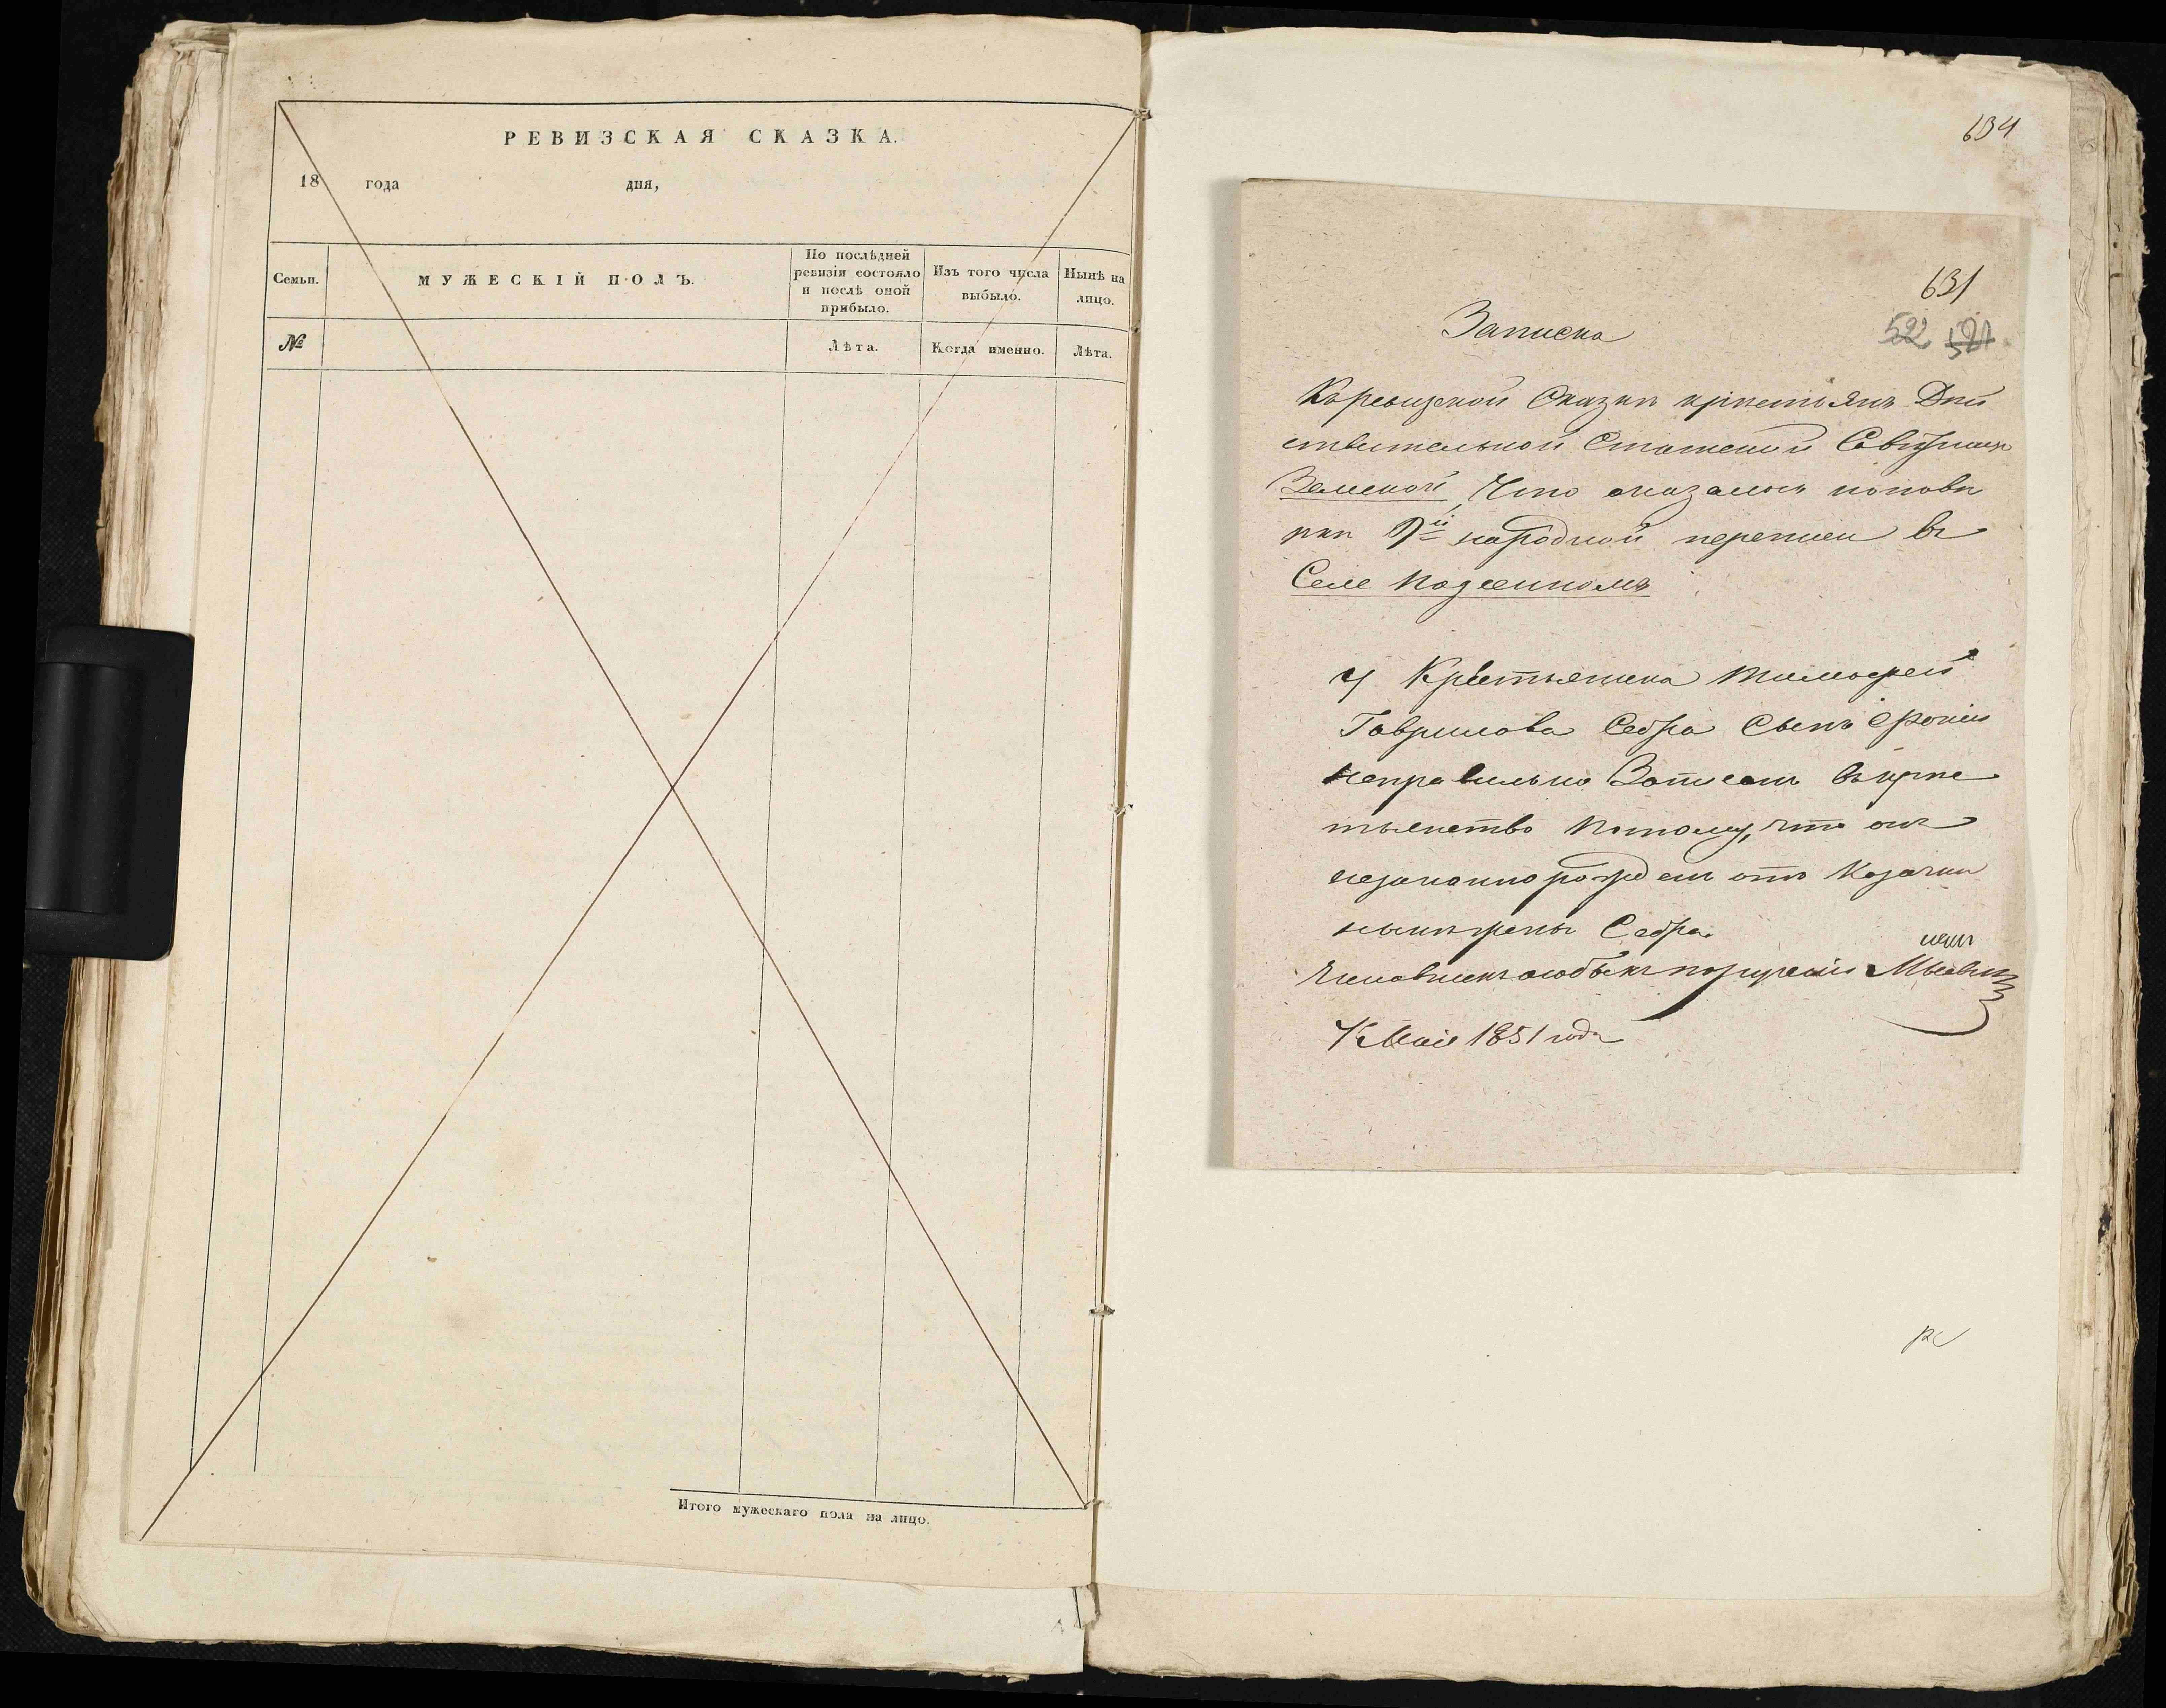 РЕВИЗСКАЯ СКАЗКА.
18 года дня,
Семьи.
МУЖЕСКІЙ ПОЛЪ.
По послѣдней
ревизіи состояло
и послѣ оной
прибыло.
Изъ того числа
выбыло.
Нынѣ на
лицо.
№
Лѣта.
Когда именно.
Лѣта.
Итого мужескаго пола на лицо.
634
631
522 521
Записка
Къ ревизской Сказкѣ крѣпостьянъ Дѣй
ствительной Статской Совѣтницы
Что оказалось по повѣ
ркѣ 9й народной переписи въ
Селе
У Крестьянина Тимофей
Гаврилова Себра Сынъ
неправильно Записанъ въ кре
тьянство Потому, что онъ
незаконно рожденъ отъ Казачки
Себра.
Чиновникъ особыхъ порученій
Мая 1851 года